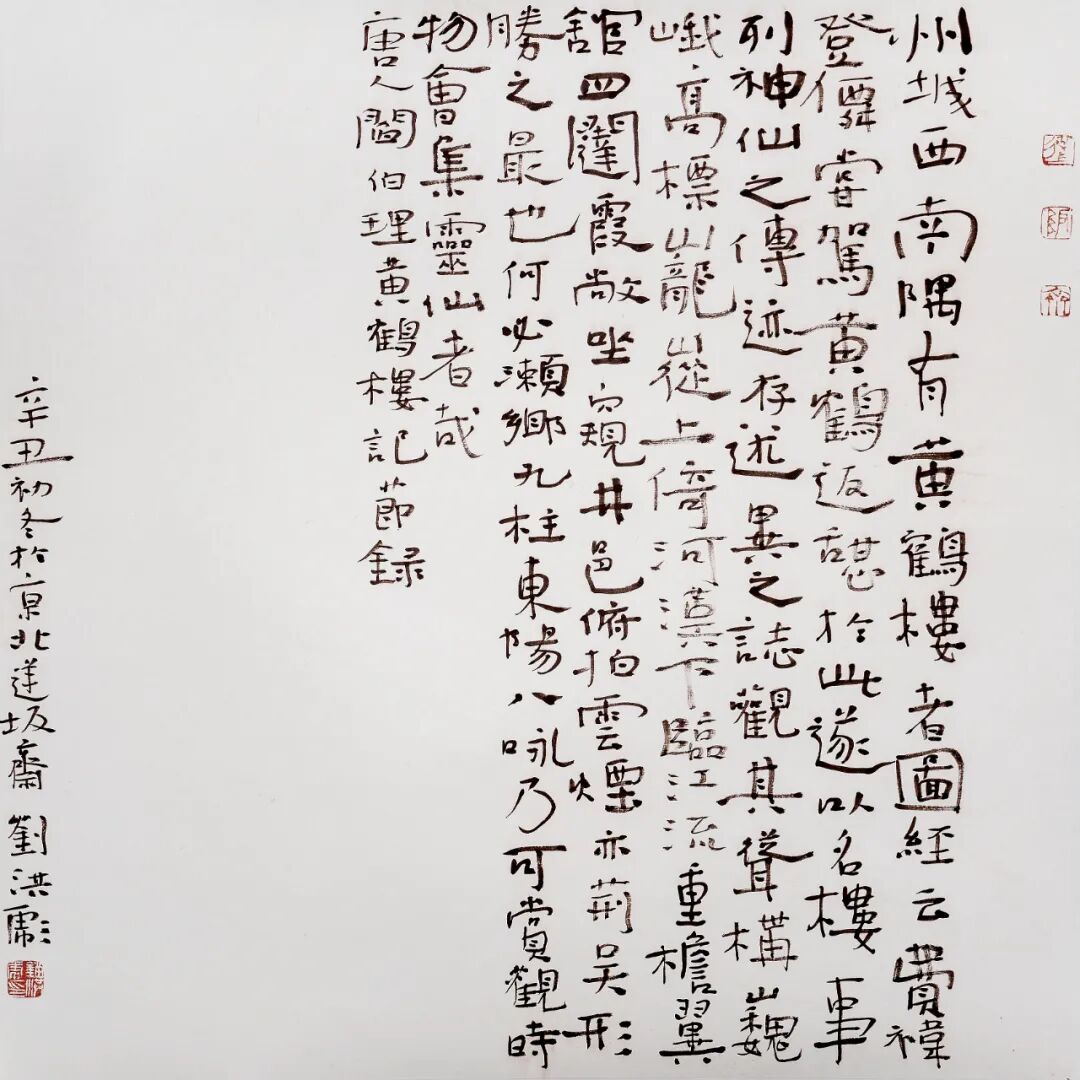 州城西南隅有黄鶴樓者圖經云費禕
登僊嘗駕黄鶴返憇於此遂以名樓事
列神仙之傳迹存述異之誌觀其聳構巍
峨高標巃嵸上倚河漢下臨江流重檐翼
舘四闥霞敞坐窺井邑俯拍雲煙亦荊吳形
勝之最也何必瀨鄉九柱東陽八咏乃可賞觀時
物會集靈仙者哉
唐人閻伯理黄鶴樓記節録
辛丑初冬於京北逆坂齋劉洪彪